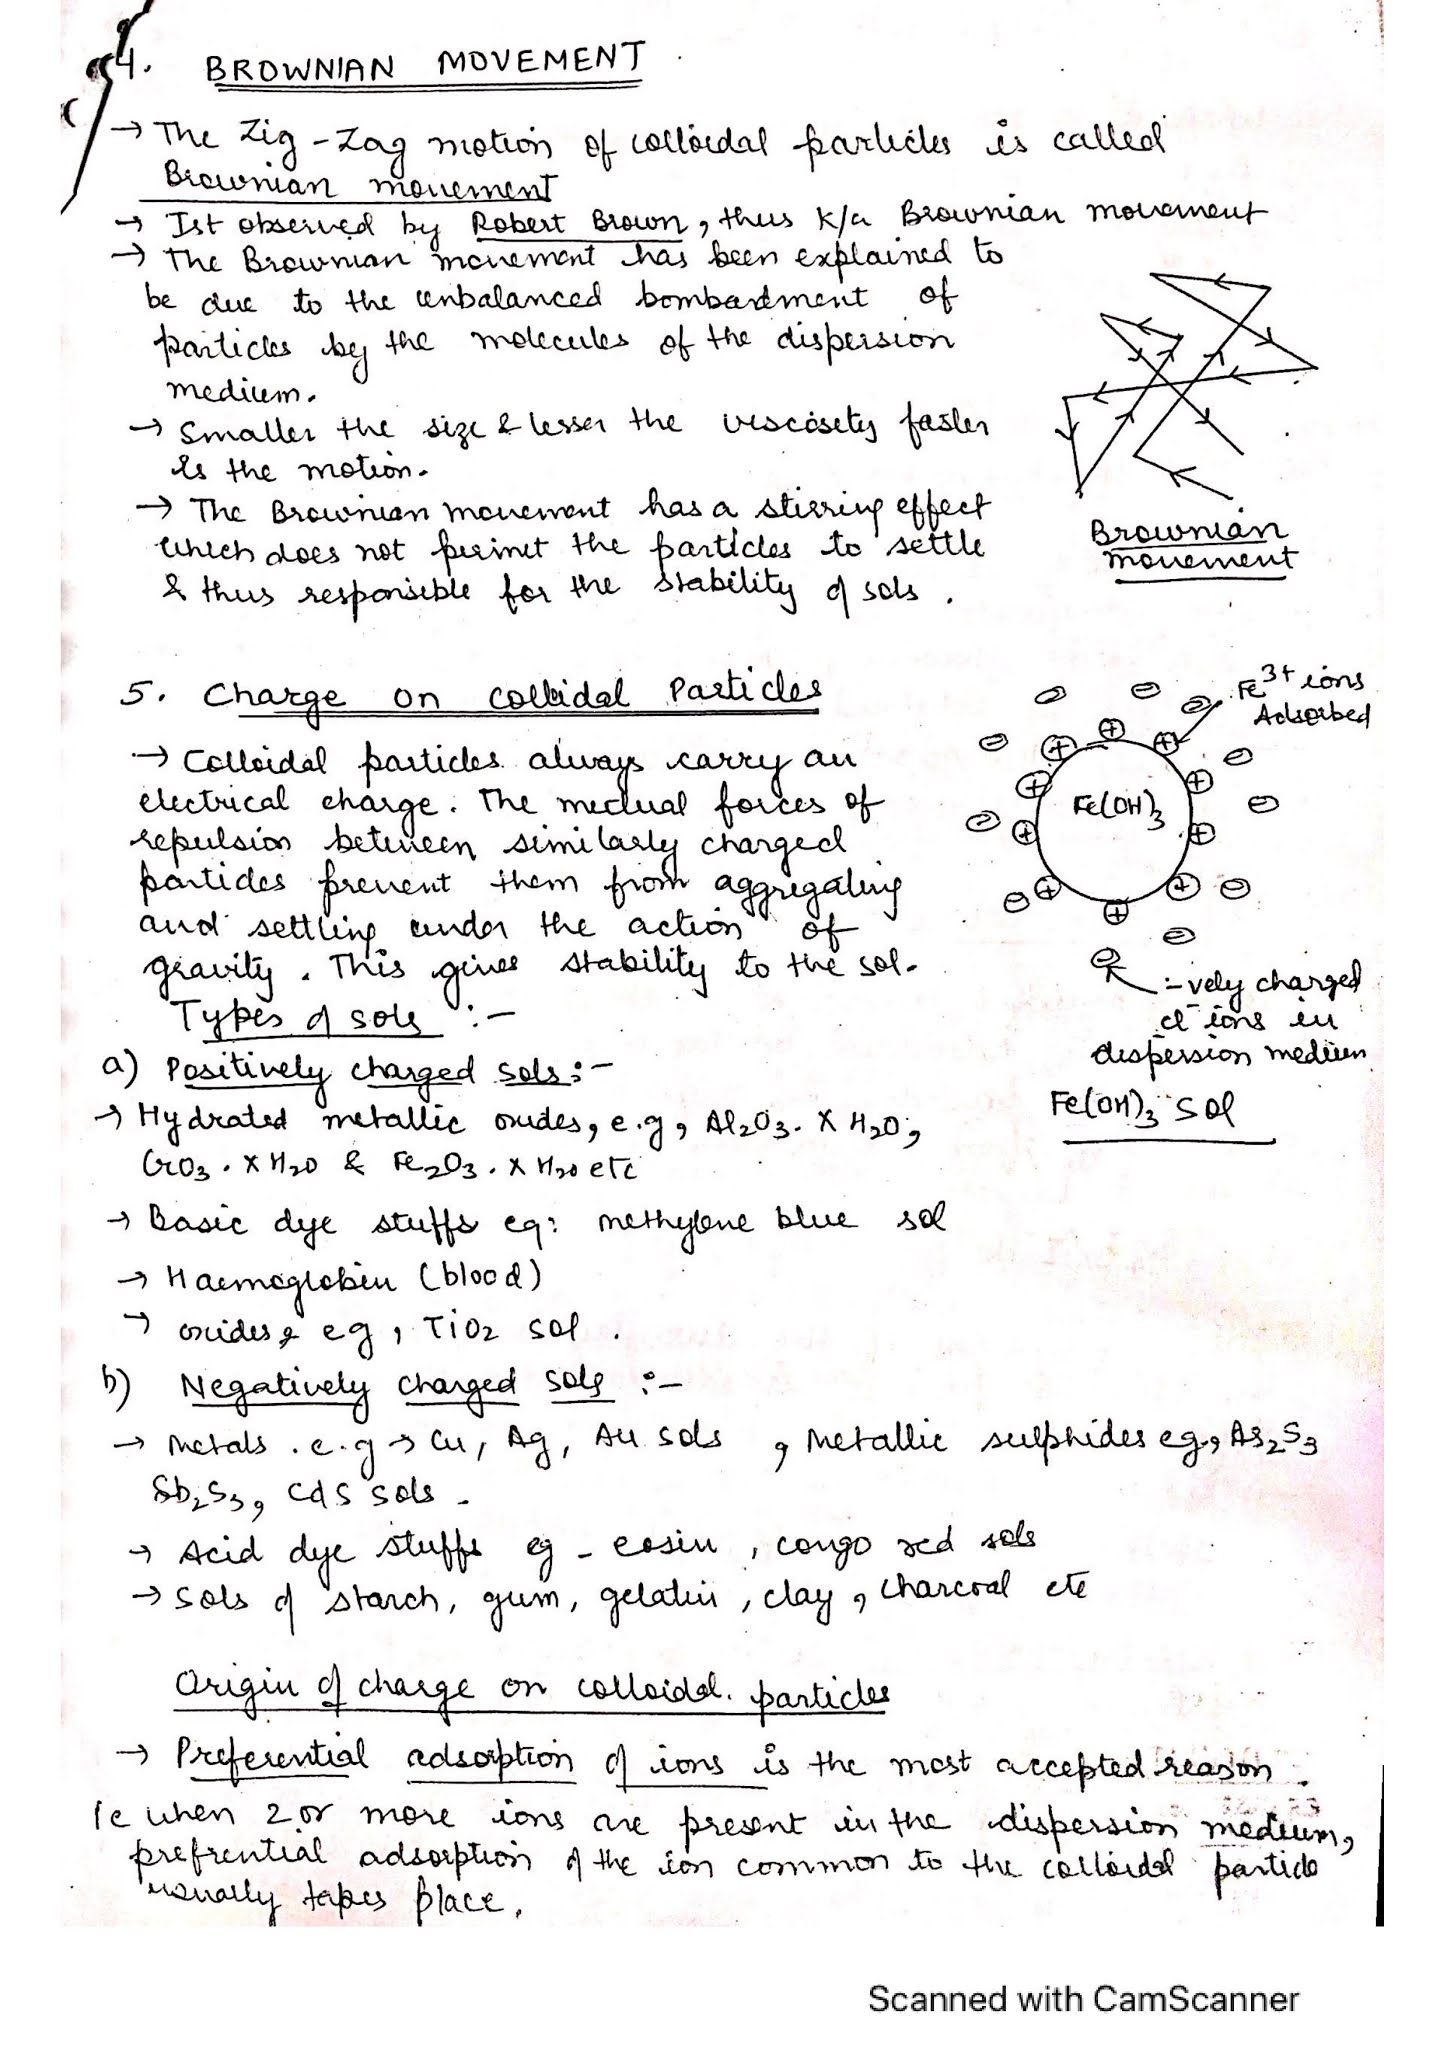 4. BROWNIAN MOVEMENT
→ The Zig-Zag motion of colloidal particles is called
Brownian movement
→ Ist observed by Robert Brown, thus k/a Brownian movement
→ The Brownian movement has been explained to
be due to the unbalanced bombardment of
particles by the molecules of the dispersion
medium.
→ Smaller the size & lesser the viscosity faster
is the motion.
→ The Brownian movement has a stirring effect
which does not permit the particles to settle
& thus responsible for the stability of sols.
Brownian
movement
5. Charge on colloidal Particles
→ Colloidal particles always carry an
electrical charge. The mutual forces of
repulsion between similarly charged
particles prevent them from aggregating
and settling under the action of
gravity. This gives stability to the sol.
Fe3+ ions
Adsorbed
Fe(OH)3
-vely charged
cl- ions in
dispersion medium
Fe(OH)3 sol
Types of sols :-
a) Positively charged sols:-
→ Hydrated metallic oxides, e.g, Al2O3. X H2O,
CrO3. X H2O & Fe2O3. X H2O etc
→ Basic dye stuffs eg: methylene blue sol
→ Haemoglobin (blood)
→ oxides, eg, TiO2 sol.
b) Negatively charged sols :-
→ Metals. e.g → Cu, Ag, Au sols, Metallic sulphides eg, As2S3
Sb2S3, CdS sols.
→ Acid dye stuffs eg - eosin, congo red sols
→ Sols of starch, gum, gelatin, clay, charcoal etc
Origin of charge on colloidal. particles
→ Preferential adsorption of ions is the most accepted reason.
ie when 2 or more ions are present in the dispersion medium,
prefrential adsorption of the ion common to the colloidal particle
usually takes place.
Scanned with CamScanner